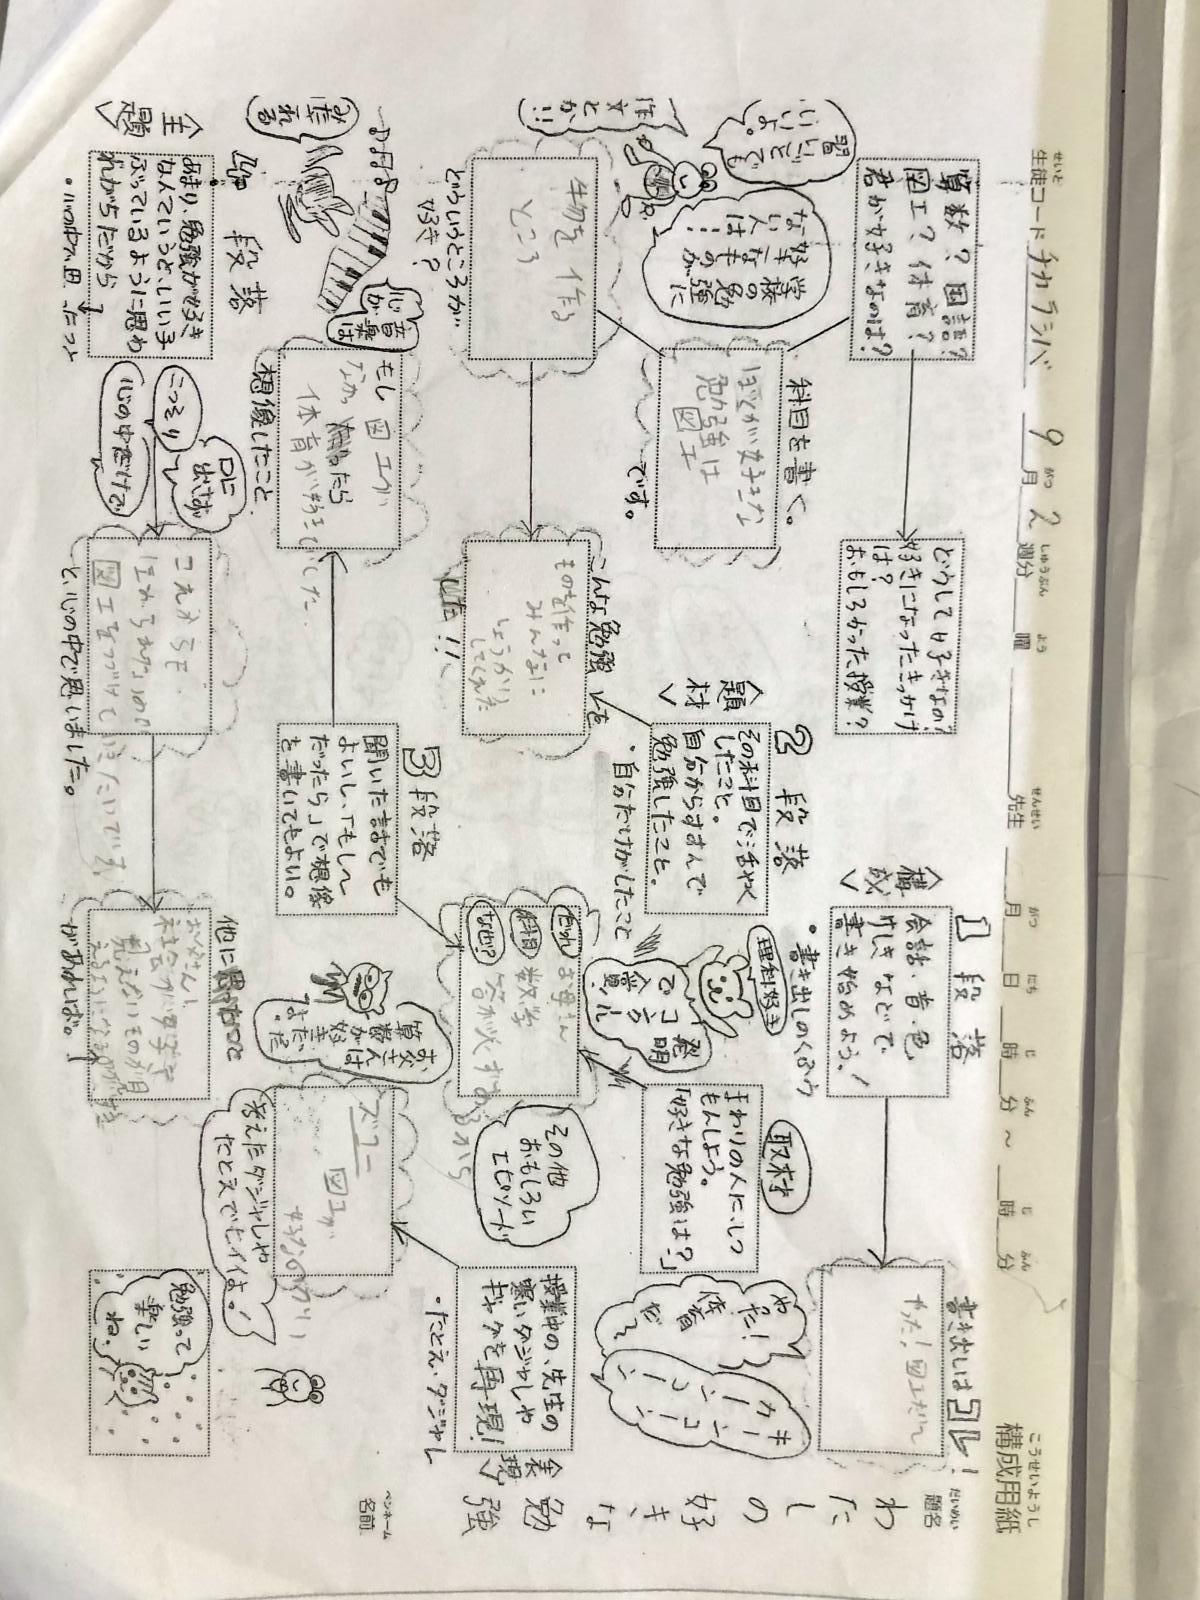 構成用紙
こうせいようし
生徒コード チカラシバ 9月2週分 曜 先生 月 日 時 分 ～ 時 分
題名
わたしの好きな勉強
ペンネーム
名前
書き出しはコレ!
やった!図工だ
1段落
〈構成〉
会話・音色
などで
書き始めよう!
・書き出しのくふう
キーンコーンカーンコーン
やった!
体育
だ
どうして好きなの?
好きになったきっかけ
は?
おもしろかった授業?
算数?国語?
図工?体育?
君が好きなのは?
科目を書く。
ぼくが好きな
勉強は
図工
です。
学校の勉強に
好きなものが
ない人は…
習いごとでも
いいよ。
作文とか!!
どういうところが
好き?
物を作る
ところ
2段落
〈題材〉
その科目で活やく
したこと。
自分からすすんで
勉強したこと。
・自分だけがしたこと
こんな勉強
を
ものを作って
みんなに
しょうかい
してくれた
取材
まわりの人にしつ
もんしよう。
「好きな勉強は?」
理科好き
発明
で
だれ
科目
なぜ?
お母さん
数学
その他
おもしろい
エピソード
お父さんは
算数が好き
だったよ
3段落
聞いたままでも
よいし、「もし〜
だったら」で想像
を書いてもよい。
もし図工が
なかったら
体育が好きでした
想像したこと
音楽は
心が
みだれる
授業中の、先生の
寒いダジャレや
ギャグを再現!
〈表現〉
・たとえ・ダジャレ
図工が
考えたダジャレや
たとえでもイイよ!
4段落
〈主題〉
あまり、勉強が好き
なんていうと、いい子
ぶっているように思わ
れがちだから
・心の中で思ったこと
口に
出さず
こっそり
心の中だけで
これからも
図工をつづけていきたいです
と、心の中で思いました。
他に思ったこと
があれば。
勉強って
楽しい
ね。